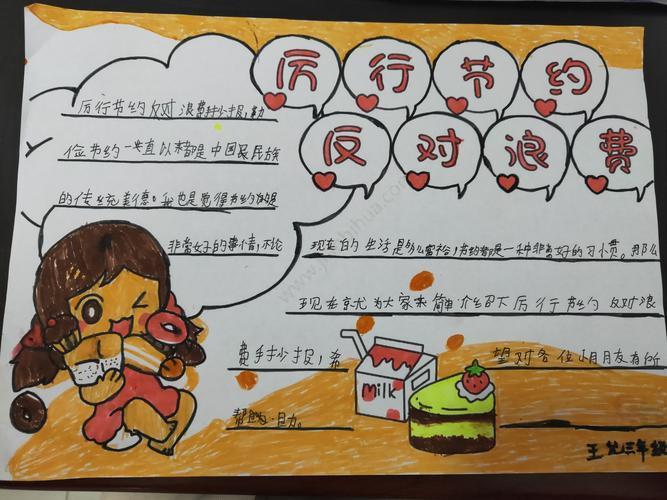 厉行节约
反对浪费
厉行节约反对浪费手抄报，勤
俭节约一直以来都是中国家民族
的传统美德。我也是觉得节约粮食
非常好的事情，不论
现在的生活是多么富裕，节约都是一种非常好的习惯。那么
现在就为大家来简单介绍下厉行节约反对浪
费手抄报，希
望对各位小朋友有所
帮助
Milk
三年级